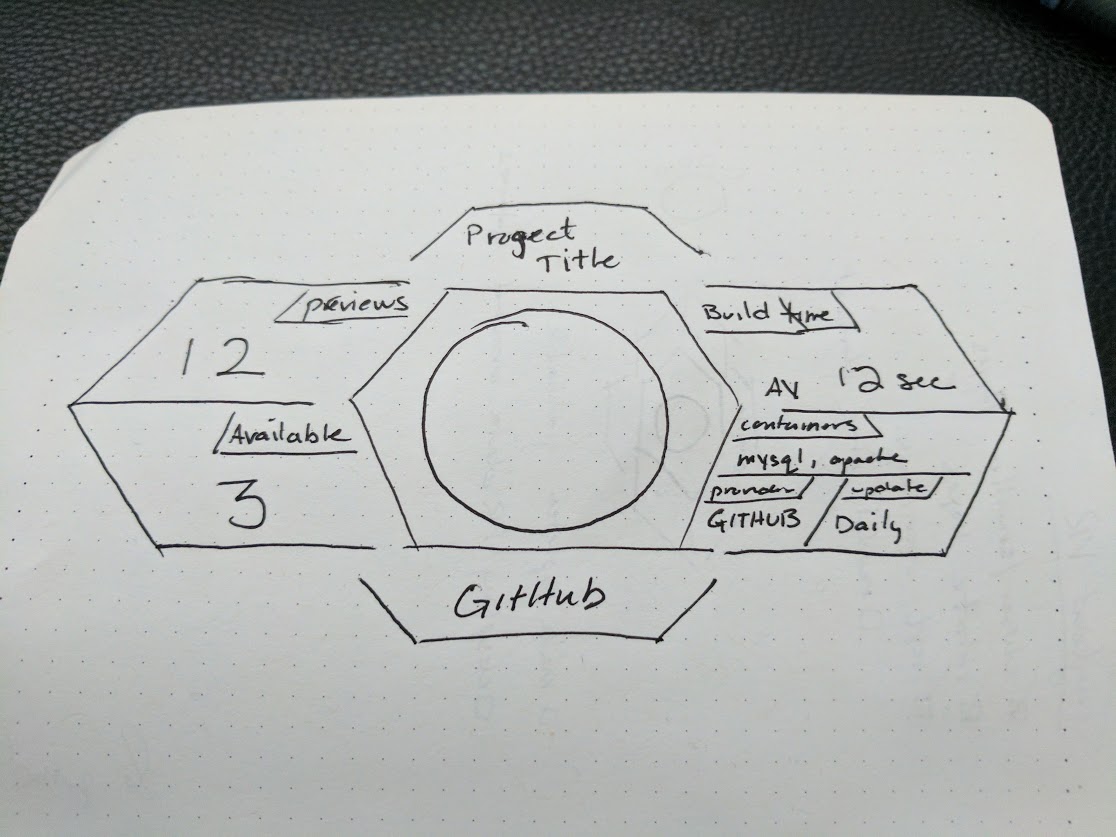 Progect
Title
previews
12
Available
3
Build time
AV 12 sec
containors
mysql, apache
provider
GITHUB
update
Daily
GitHub